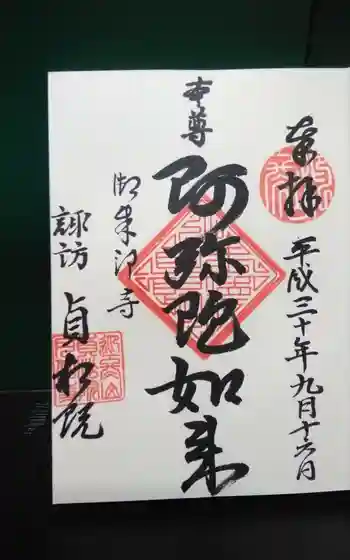 奉拝
平成三十年九月十六日
本尊
阿弥陀如来
御朱印寺
諏訪 貞松院